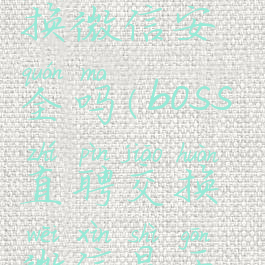 换微信安
quán ma
全吗(boss
zhí pìn jiāo huàn
直聘交换
wēi xìn shì yīn
微信是